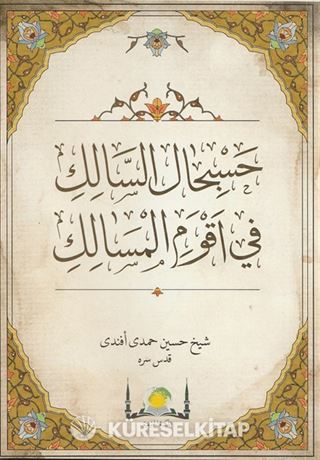 حَسبِحَالِ السَّالِكِ
فِي اَقْوَمِ الْمَسَالِكِ
شيخ حسين حمدى أفندى
قدس سره
KÜRESELKİTAP